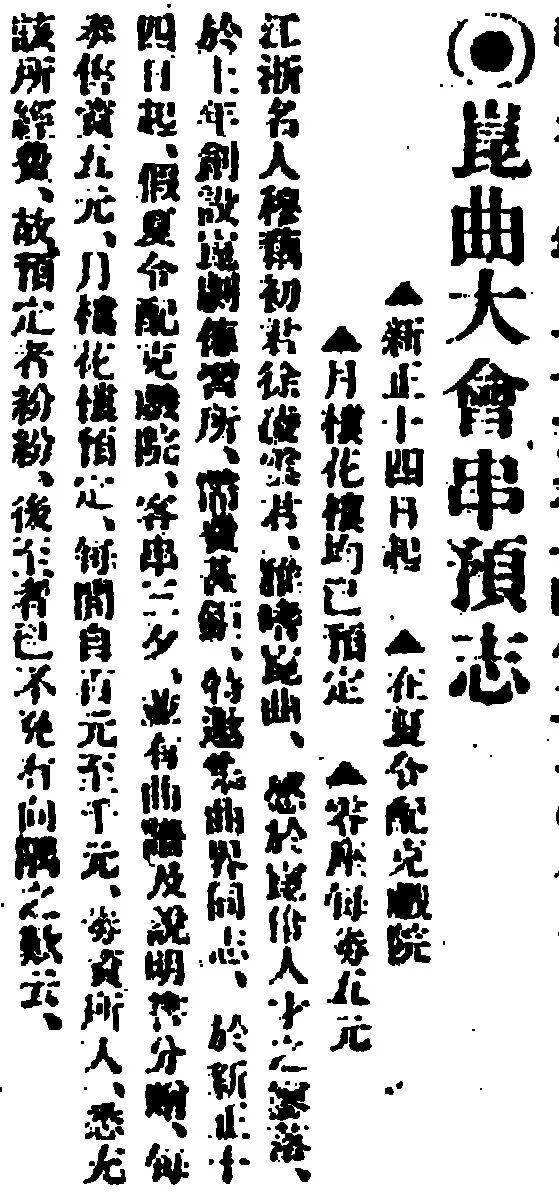 崑曲大會串預志
▲新正十四日起 ▲在夏令配克戲院
▲月樓花樓均已預定 ▲零座每券五元
江浙名人穆藕初君徐凌雲君、雅嗜崑曲、感於崑伶人才之寥落、
於上年創設崑劇傳習所、需費甚鉅、特邀集曲界同志、於新正十
四日起、假夏令配克戲院、客串三夕、並有曲譜及說明書分贈、每
券售資五元、月樓花樓預定、每間自百元至千元、券資所入、悉充
該所經費、故預定者紛紛、後至者已不免有向隅之歎云、